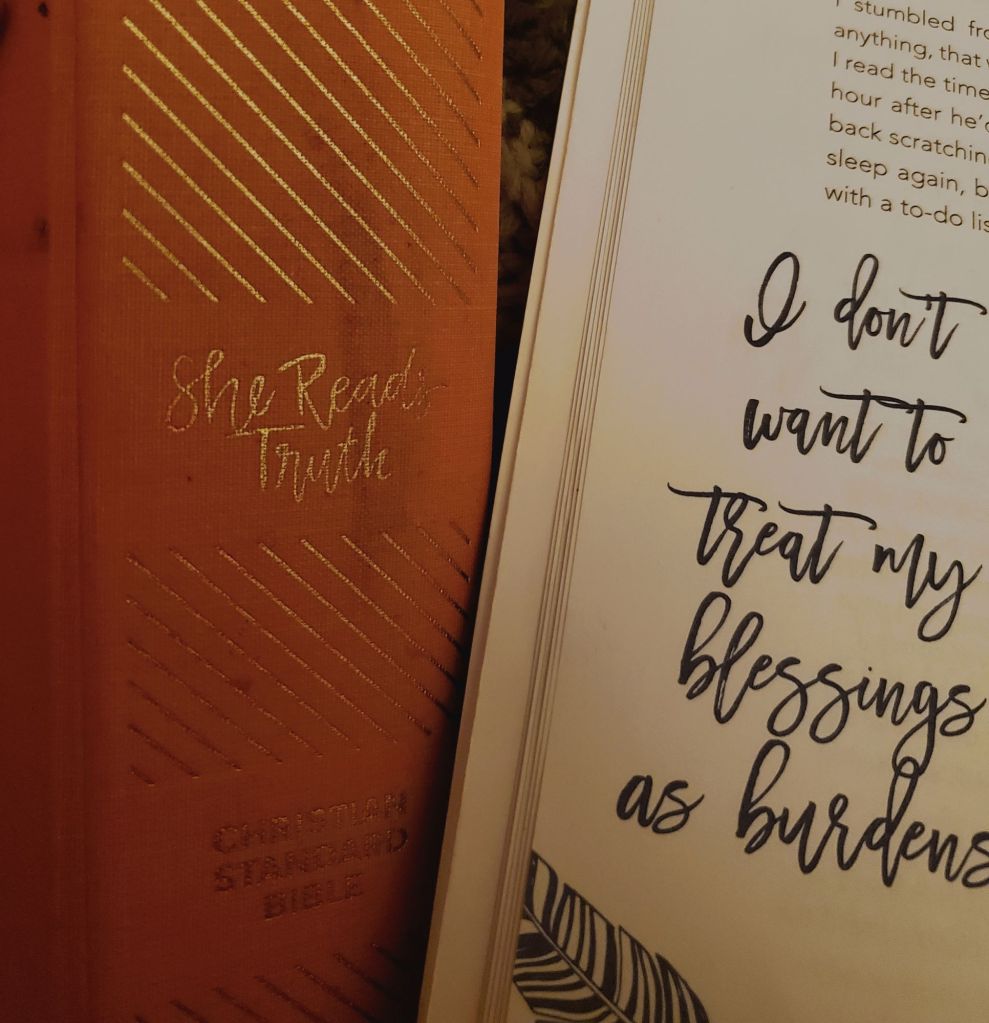 She Reads
Truth
CHRISTIAN
STANDARD
BIBLE
I stumbled
anything, that
I read the time
hour after
back
sleep again,
with a to-do
I don't
want to
treat my
blessings
as burdens